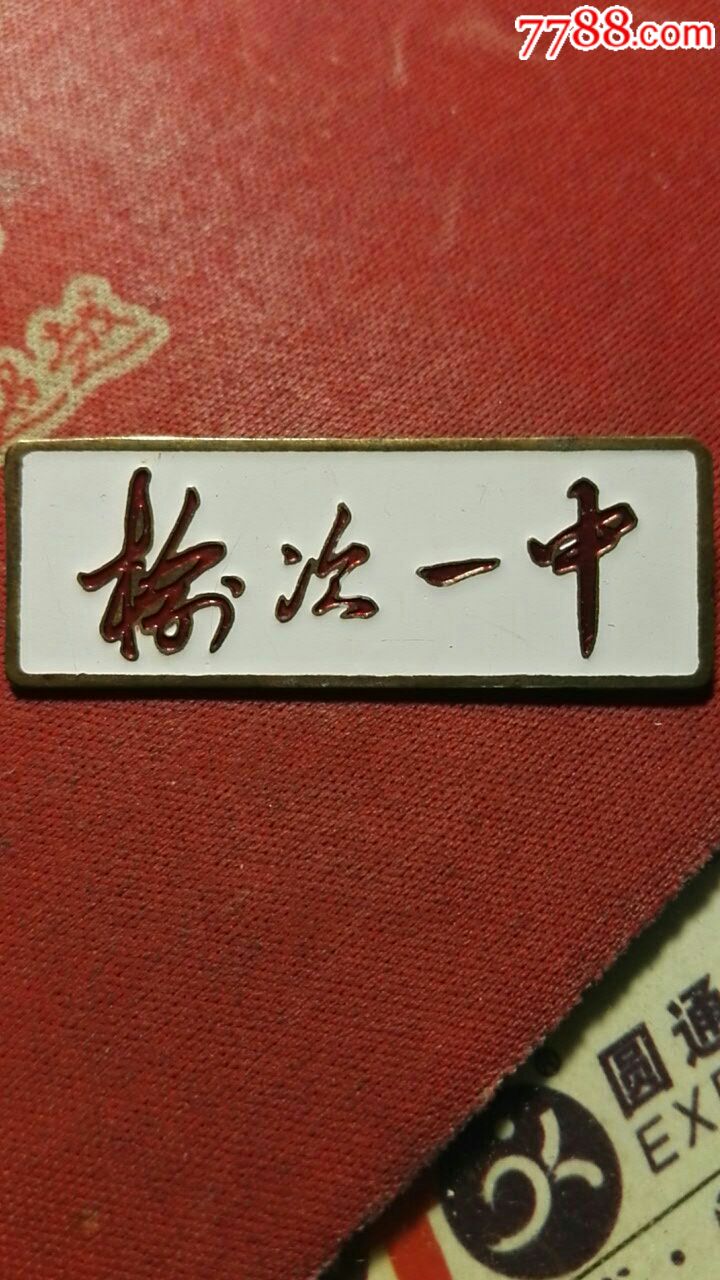 7788.com
榆次一中
圆通
EX